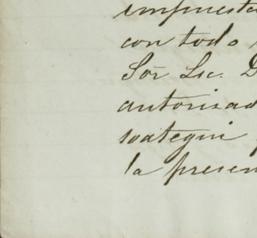 impuesta
con todo
Sōr Lic. D
autorizad
la presen